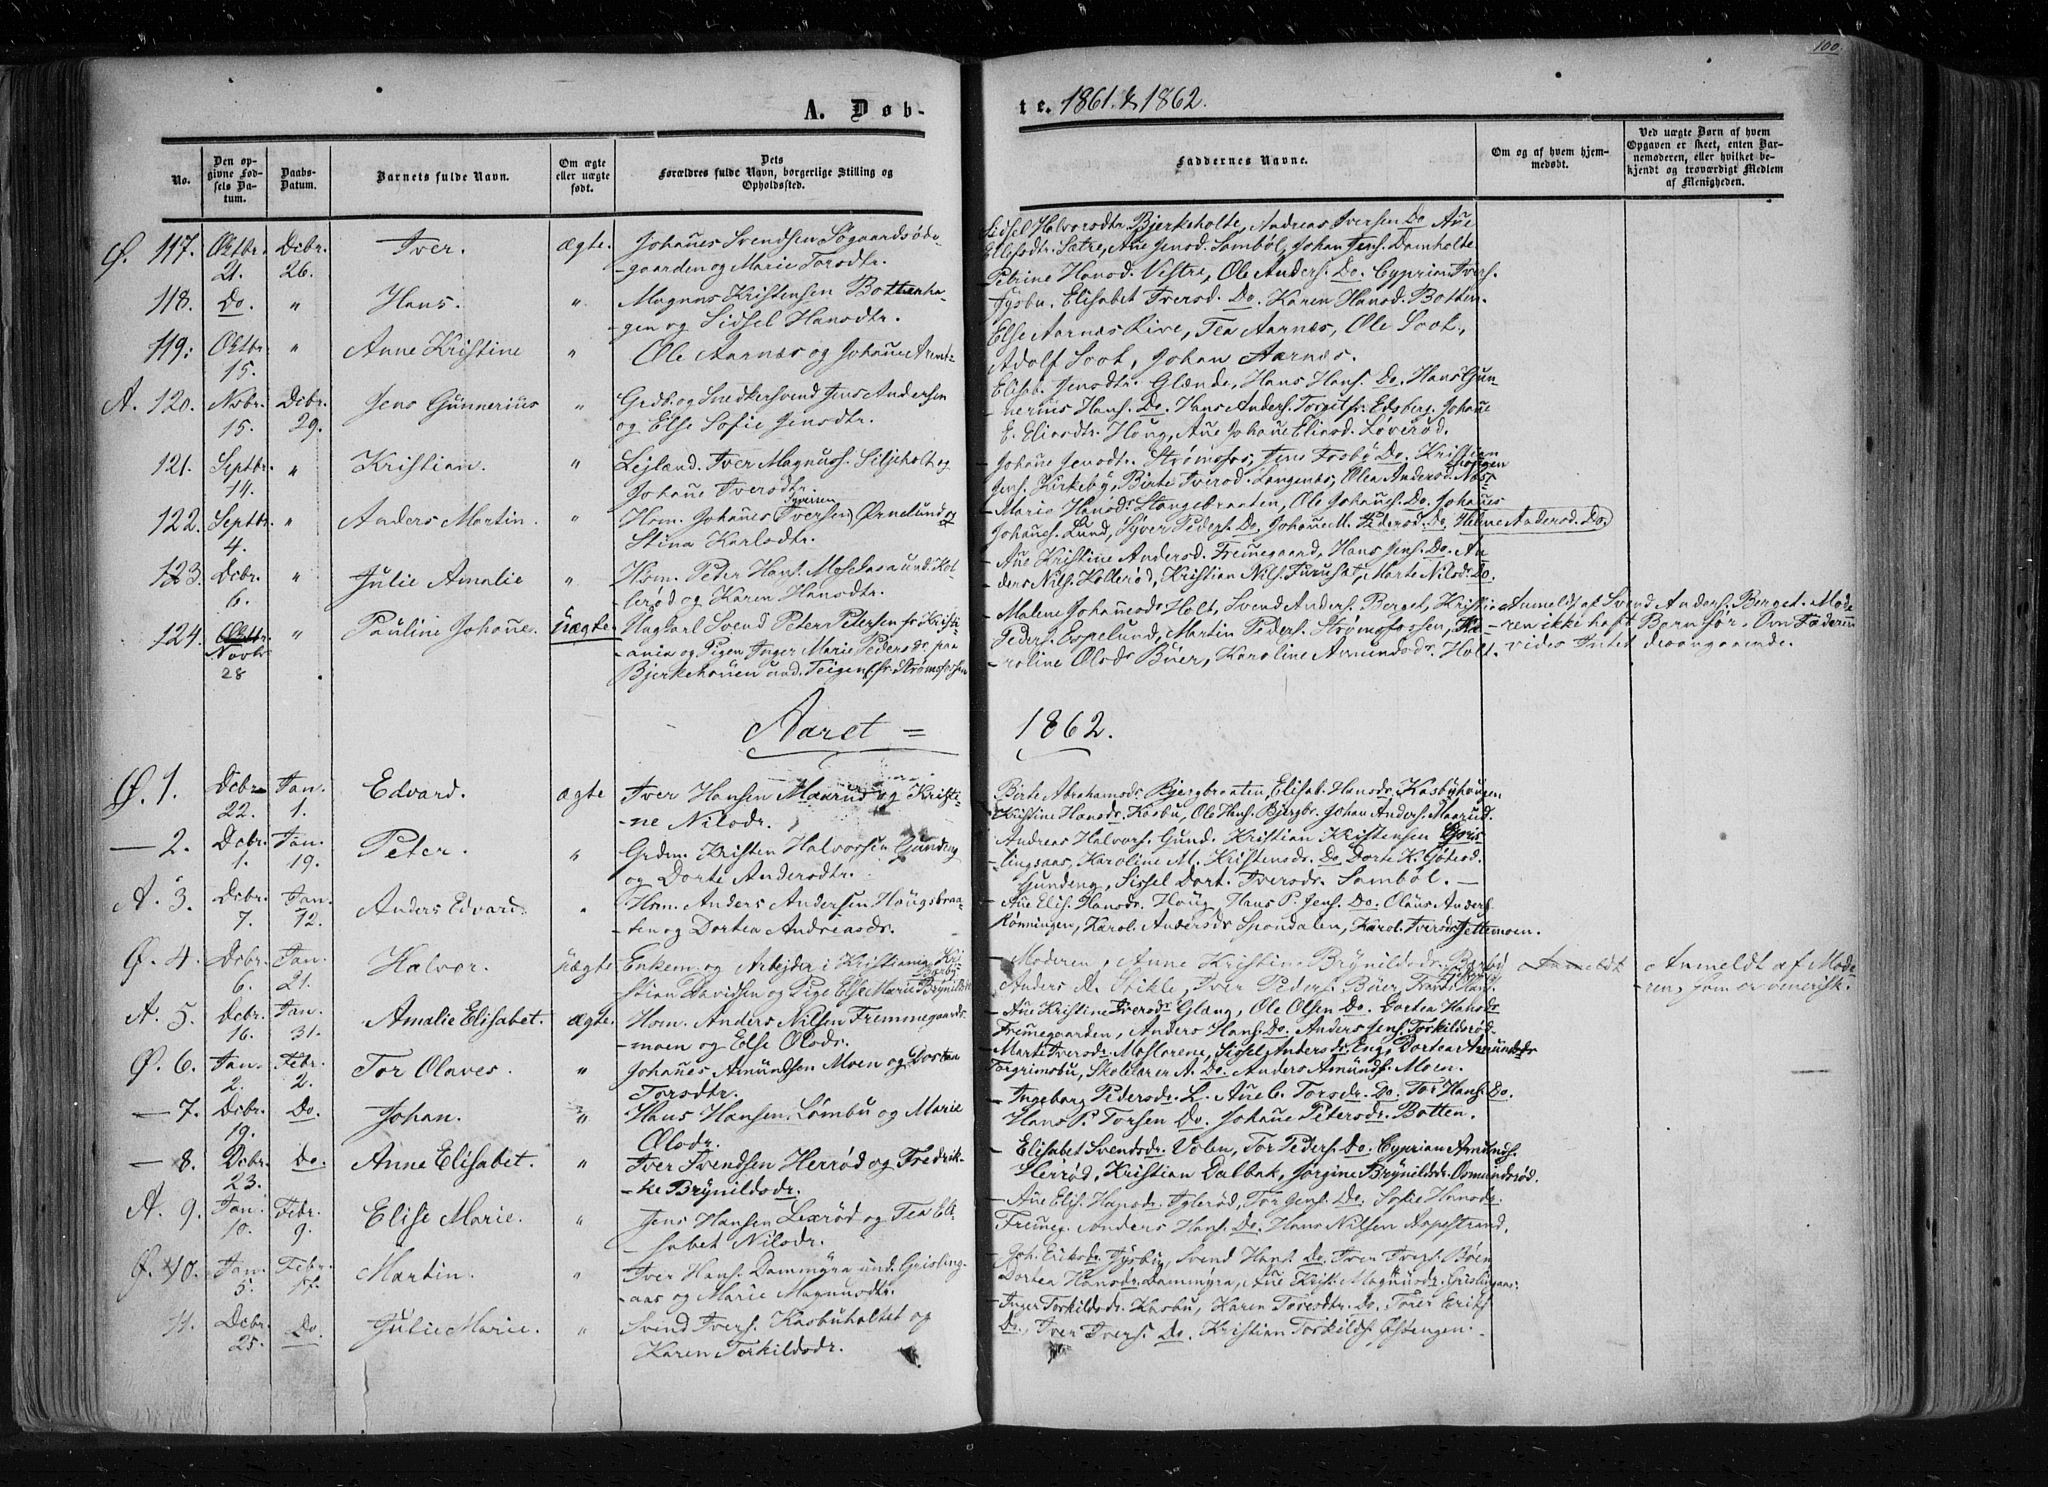 100.
A. Døb-
te. 1861. & 1862.
No.
Den op-
givne Fød-
sels Da-
tum.
Daabs-
Datum.
Barnets fulde Navn.
Om ægte
eller uægte
født.
Dets
Forældres fulde Navn, borgerlige Stilling og
Opholdssted.
Faddernes Navne.
Om og af hvem hjem-
medøbt.
Ved uægte Børn af hvem
Opgaven er skeet, enten Bar-
nemoderen, eller hvilket be-
kjendt og troværdigt Medlem
af Menigheden.
Ø. 117. Oktbr. 21. Dcbr. 26. Iver. ægte. Johannes Svendsen Søgaardsøde-
gaarden og Marie Torsdtr.
Sidsel Halvorsdtr. Bjerkeholte, Andreas Iversen Do. Ane
Ellefsdtr. Sætre, Ane Jensd. Sambøl, Johan Jens. Damholte
118. Do. " Hans. " Magnus Kristensen Bottenha-
gen og Sidsel Hansdtr.
Petrine Hansd. Vestre, Ole Anders. Do. Cyprian Ivers.
Fysbu. Elisabet Iversd. Do. Karen Hansd. Botten.
119. Oktbr. 15. " Anne Kristine " Ole Aarnæs og Johanne Arent-
Else Aarnæs Kive, Tea Aarnæs, Ole Soot,
Adolf Soot, Johan Aarnæs.
A. 120. Nvbr. 15. Dcbr. 29. Jens Gunnerius " Grdb. og Snedkersvend Jens Andersen
og Else Sofie Jensdtr.
Elisab. Jensdtr. Glænde, Hans Hans. Do. Hans Gun-
nerius Hans. Do. Hans Anders. Torget fr. Edsberg. Johanne
E. Eliasdtr. Houg, Ane Johanne Eliasd. Løverød.
121. Septbr. 14. " Kristian. " Lejlænd. Iver Magnuss. Siljeholt og
Johanne Iversdtr.
- Johanne Jensdtr. Strømsfos, Jens Fosbÿ Do. Kristian
Jens. Kirkebÿ, Birte Iversd. Langenæs, Olea Andersd. Næs-
haugen
122. Septbr. 4. " Anders Martin. " Hsm. Johannes Iversen Ørnelund og
Syversen
Stina Karlsdtr.
- Marie Hansd. Stangebraaten, Ole Johans. Do. Johannes
Johans. Lund, Syver Peders. Do. Johanne M. Pedersd. Do. Helene Andersd. Do.
123. Dcbr. 6. " Julie Amalie " Hsm. Peder Hans. Mosetasa und. Kol-
lerød og Karen Hansdtr.
- Ane Kristine Andersd. Fremegaard, Hans Jens. Do. An-
ders Nils. Kollerød, Kristian Nils. Furuset, Marte Nilsd. Do.
124. Oktbr. Novbr. 28 " Pauline Johanne. Uægte. Hagkarl Svend Peter Petersen fr. Kristi-
ania og Pigen Inger Marie Pedersdr. paa
Bjerkehouen und. Teigen fr. Strømsfossen
- Malene Johannesdr. Holt, Svend Anders. Berget, Kristi-
Peders. Espelund, Martin Peders. Strømsfossen, Ka-
roline Olsdr. Büer, Karoline Amundsdr. Holt.
Anmeldt af Svend Anders. Berget. Mode-
ren ikke haft Barn før. Om Faderen
vides Intet desangaaende.
Aaret = 1862.
Ø. 1. Dcbr. 22. Jan. 1. Edvard. ægte Iver Hansen Maarud og Kristi-
ne Nilsdr.
Birte Abrahamsdr. Bjergbraaten, Elisab. Hansdr. Kasbÿhaugen
Kristine Hansdr. Kasbu, Ole Hans. Bjergbr. Johan Anders. Maarud.
- 2. Dcbr. 1. Jan. 19. Peter. " Grdm. Kristen Halvorsen Gundeng
og Dorte Andersdtr.
Andreas Halvors. Gund. Kristian Kristensen Gris-
lingsaas, Karoline M. Kristensdr. Do. Dorte K. Gøtesd.
Gundeng, Sissel Dort. Iversdr. Sambøl. -
A. 3. Dcbr. 7. Jan. 12. Anders Edvard. " Hsm. Anders Andersen Hougsbraa-
ten og Dortea Andreasdr.
- Ane Elis. Hansdr. Houg, Hans P. Jens. Do. Olaus Anders.
Rønningen, Karol. Andersdr. Spondalen, Karol. Iversdr. Jettemoen.
Ø. 4. Dcbr. 6. Jan. 21. Halvor. uægte Enkem. og Arbejder i Kristiania Kri-
stian Davidsen og Pige Else Marie Brÿnildsdr.
Børbÿ
- Moderen, Anne Kristine Brÿnildsdr. Børbÿ
Anders A. Stikle, Iver Peders. Büer, Frants Hans.
Anmeldt
Anmeldt af Mode-
ren, som er venerisk.
A. 5. Dcbr. 16. Jan. 31. Amalie Elisabet. ægte. Hsm. Anders Nilsen Fremmegaards-
moen og Else Olsdr.
- Ane Kristine Iversdr. Glæng, Ole Olsen Do. Dortea Hansdr.
Fremegaarden, Anders Hans. Do. Anders Jens. Torkildsrød.
Ø. 6. Jan. 2. Febr. 2. Tor Olaves. " Johannes Amundsen Moen og Dortea
Torsdtr.
- Marte Iversdr. Moslorene, Sissel Andersdr. Eng, Dortea Amundsdr.
Torgrimsbu, Skolelærer A. Do. Anders Amunds. Moen.
- 7. Dcbr. 19. Do. Johan. " Hans Hansen Lømbu og Marie
Olsdr.
- Ingeborg Pedersdr. L. Ane C. Torsdr. Do. Tor Hans. Do.
Hans P. Torsen Do. Johanne Petersdr. Botten.
- 8. Dcbr. 23. Do. Anne Elisabet. " Iver Svendsen Herrød og Fredrik-
ke Brÿnildsdr.
- Elisabet Svendsdr. Volen, Tor Peders. Do. Cyprian Amunds.
Herrød, Kristian Dalbak, Jørgine Brÿnildsdr. Osmundsrød.
A. 9. Jan. 10. Febr. 9. Elise Marie. " Jens Hansen Lexrød og Tea Eli-
sabet Nilsdr.
- Ane Elis. Hansdr. Iglerød, Tor Jens. Do. Sofie Hansdr.
Fremeg. Anders Hans. Do. Hans Nilsen Dopstrand.
Ø. 10. Jan. 5. Febr. Martin. " Iver Hans. Dammÿra und. Grisling-
aas og Marie Magnusdtr.
- Joh. Eriksdr. Fysbÿ, Svend Hans. Do. Iver Ivers. Bøen
Dortea Hansdr. Dammÿra, Ane Krist. Magnusdr. Grislingaas:
11. Dcbr. 25. Do. Julie Marie. " Svend Ivers. Kasbuholtet og
Karen Torkildsdr.
- Inger Torkildsdr. Kasbu, Karen Toresdtr. Do. Tores Eriks.
Do., Iver Ivers. Do. Kristian Torkilds. Østengen.